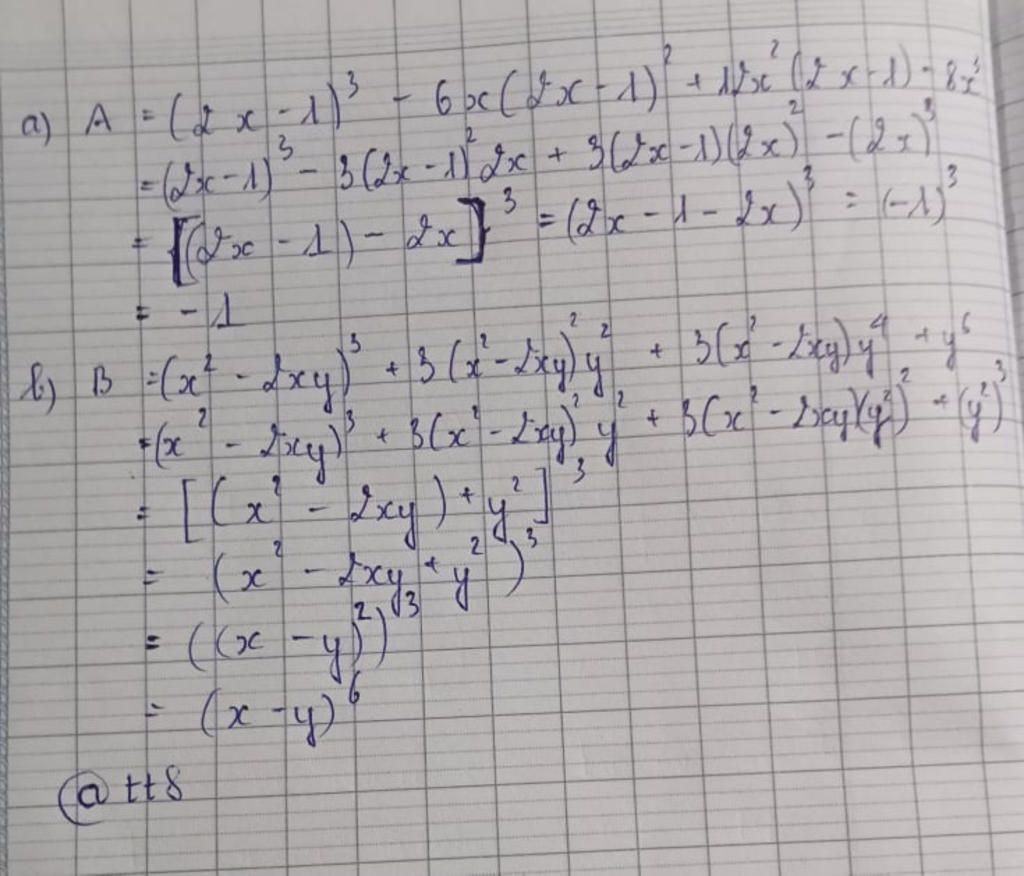 a) A = (2x - 1)³ - 6x(2x - 1)² + 12x²(2x - 1) - 8x³
= (2x - 1)³ - 3(2x - 1)² 2x + 3(2x - 1)(2x)² - (2x)³
= [(2x - 1) - 2x]³ = (2x - 1 - 2x)³ = (-1)³
= - 1
b) B = (x² - 2xy)³ + 3(x² - 2xy)² y² + 3(x² - 2xy)y⁴ + y⁶
= (x² - 2xy)³ + 3(x² - 2xy)² y² + 3(x² - 2xy)(y²)² + (y²)³
= [(x² - 2xy) + y²]³
= (x² - 2xy + y²)³
= ((x - y)²)³
= (x - y)⁶
@ tt8